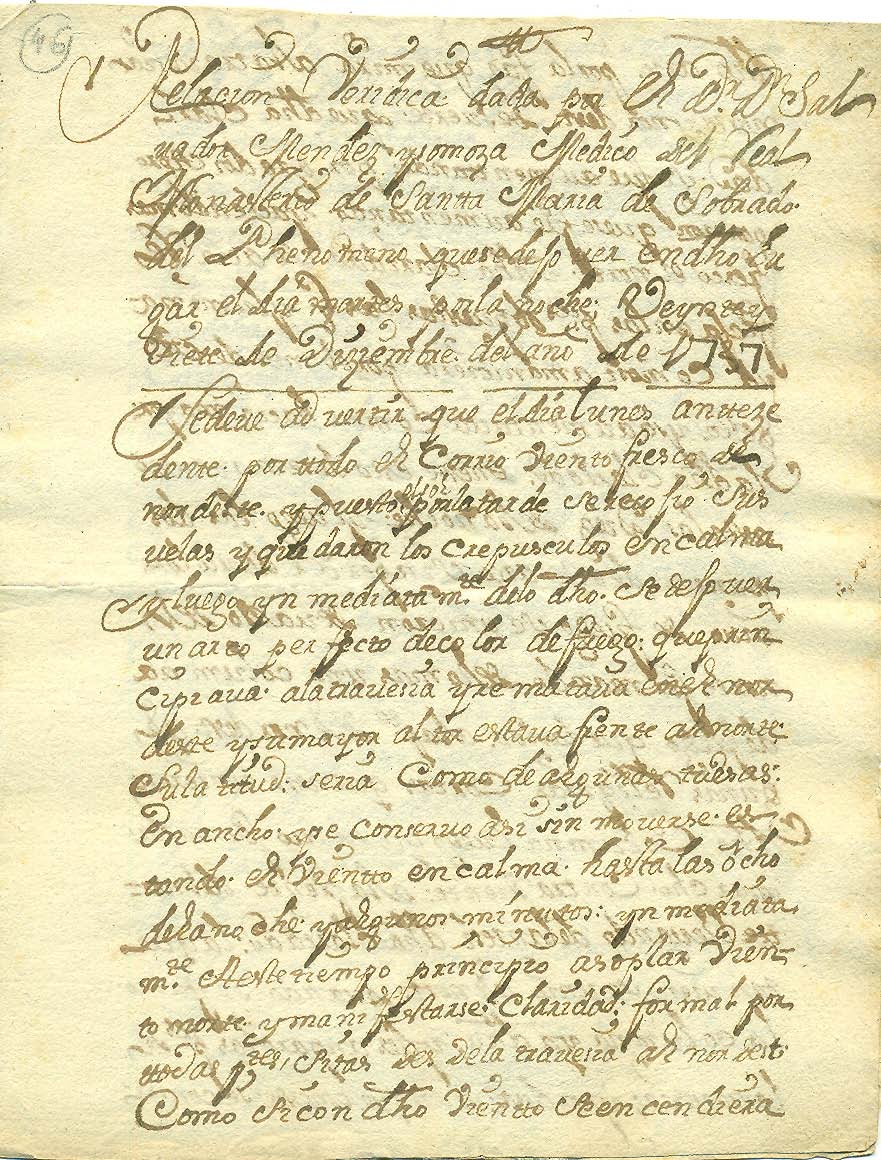 46
Relacion Veridica dada por el Dn. Dn Sal
vador Mendez ysomoza Medico del Real
Monasterio de Santta Maria de Sobrado.
del Phenomeno quesedespver endho Lu
gar el dia martes porla noche; Veyntey
Siete de Diziembre del año de 1737
Sedeve ad vertir que eldia lunes anteze
dente. por ttodo el Corrio viento fresco de
nordeste. y puesto el sol porlatarde sereco jio Sus
velas y que daron los crepusculos encalma
y luego yn mediata mte. delo dho. se despver
un arco per fecto decolor defuego: queprin
cipiava. alatravesia yre matava enel nor
deste ysumayor altor estava frente al norte
Sula titud: seria Como dealgunas tuesas:
En ancho. yse conservo asi sin moverse. es
tando. el Vientto encalma. hasta las ocho
delano che yalgunos minutos: yn mediata
mte. Aestetiempo principio asoplar Vien
to norte. ymani festarse. claridad: formal por
ttodas ptes, sitas des dela travesia al nordest.
Como si con dho Vientto seen cendiera